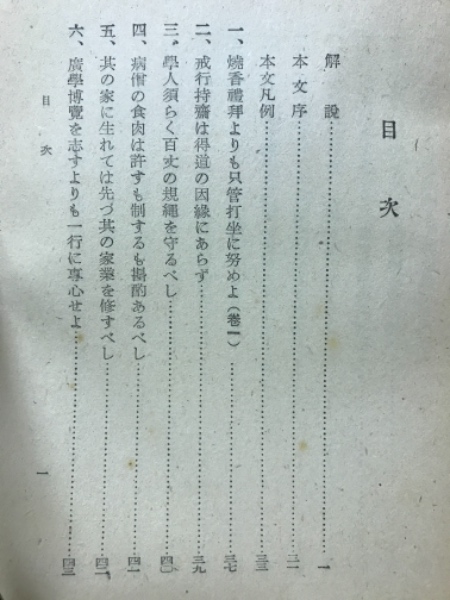 目次
解説 一
本文序 二一
本文凡例 三三
一、燒香禮拜よりも只管打坐に努めよ（卷一） 三七
二、戒行持齋は得道の因緣にあらず 三九
三、學人須らく百丈の規繩を守るべし 四〇
四、病僧の食肉は許すも制するも斟酌あるべし 四一
五、其の家に生れては先づ其の家業を修すべし 四二
六、廣學博覽を志すよりも一行に專心せよ 四三
目次 一